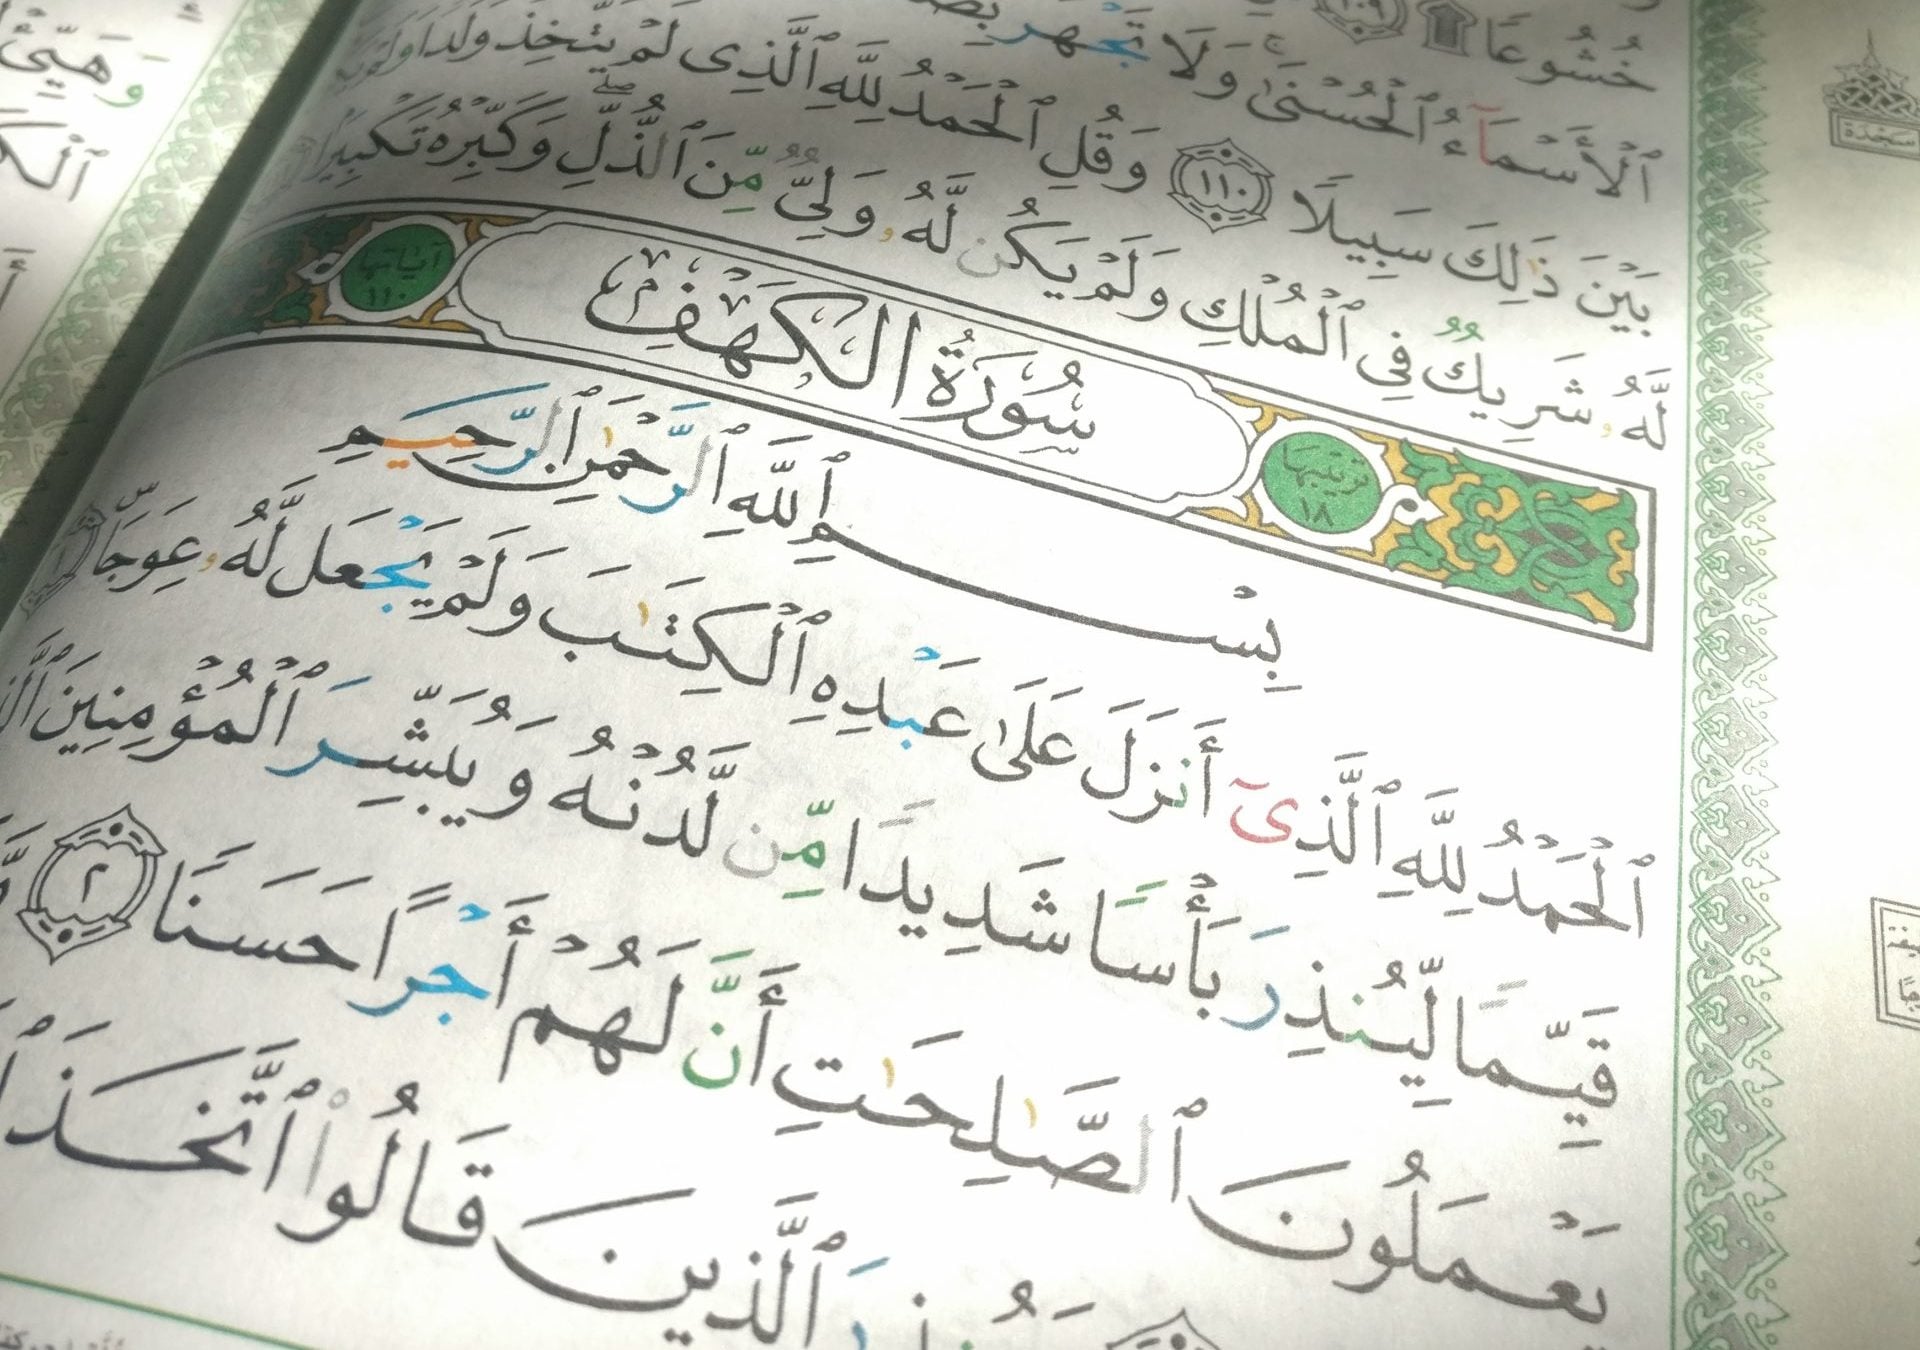 خُشُوعًا ۩ ١٠٩
ٱلْأَسْمَآءُ ٱلْحُسْنَىٰ ۚ وَلَا تَجْهَرْ
بَيْنَ ذَٰلِكَ سَبِيلًا ١١٠ وَقُلِ ٱلْحَمْدُ لِلَّهِ ٱلَّذِى لَمْ يَتَّخِذْ وَلَدًا وَلَمْ يَكُن
لَّهُۥ شَرِيكٌ فِى ٱلْمُلْكِ وَلَمْ يَكُن لَّهُۥ وَلِىٌّ مِّنَ ٱلذُّلِّ ۖ وَكَبِّرْهُ تَكْبِيرًۢا
ترتيبها ١٨ سُورَةُ الكَهْفِ آياتها ١١٠
بِسْمِ ٱللَّهِ ٱلرَّحْمَٰنِ ٱلرَّحِيمِ
ٱلْحَمْدُ لِلَّهِ ٱلَّذِىٓ أَنزَلَ عَلَىٰ عَبْدِهِ ٱلْكِتَٰبَ وَلَمْ يَجْعَل لَّهُۥ عِوَجَاۜ ١
قَيِّمًا لِّيُنذِرَ بَأْسًا شَدِيدًا مِّن لَّدُنْهُ وَيُبَشِّرَ ٱلْمُؤْمِنِينَ
يَعْمَلُونَ ٱلصَّٰلِحَٰتِ أَنَّ لَهُمْ أَجْرًا حَسَنًا ٢
ٱلَّذِينَ قَالُوا۟ ٱتَّخَذَ
سجدة